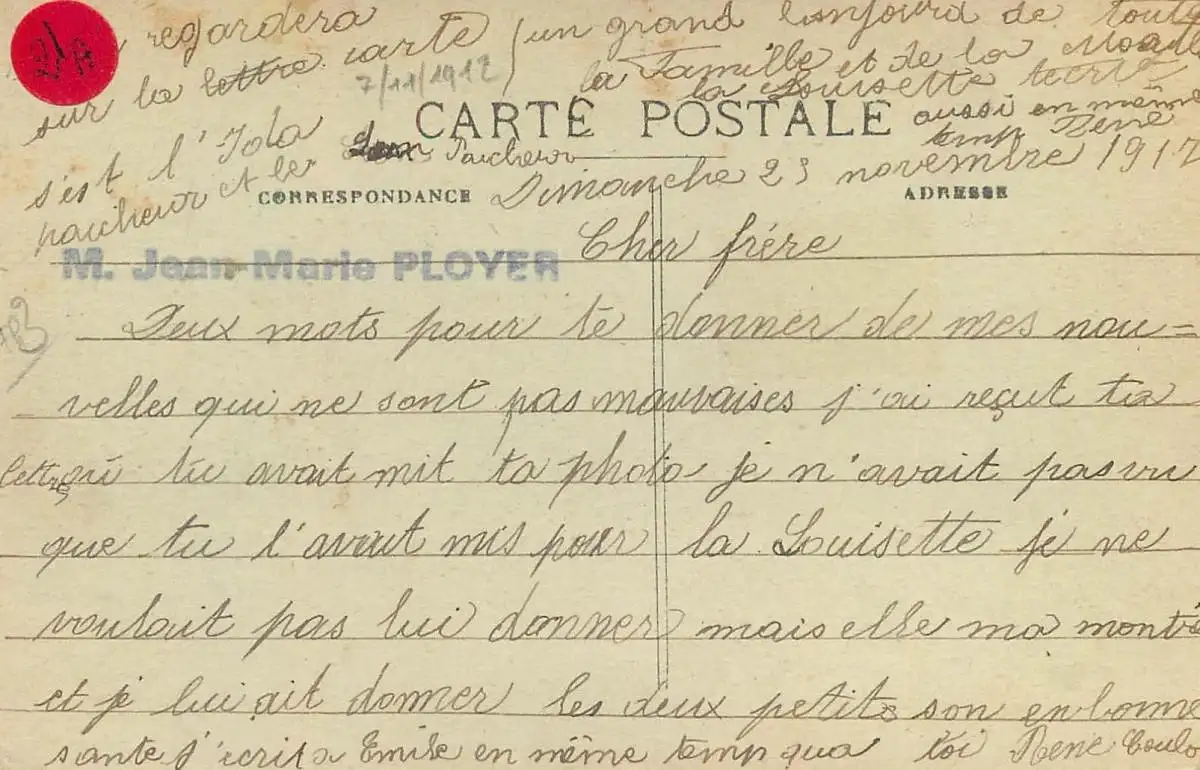 regardera
sur la lettre carte
s'est l'Iola
paicheur et le Paicheur
un grand bonjourd de toute
la Famille et de la
la Louisette
aussi en même
temp René
7/11/1912
CARTE POSTALE
CORRESPONDANCE
ADRESSE
Dimanche 23 novembre 1917
M. Jean-Marie PLOYER
Cher frére
Deux mots pour te donner de mes nou=
velles qui ne sont pas mauvaises j'ai reçut ta
lettre tu avait mit ta photo je n'avait pas vu
que tu l'avait mis pour la Louisette je ne
voulait pas lui donner mais elle ma monté
et je lui ait donner les deux petits son en bonne
sante j'ecrit a Emile en même temp qua toi René